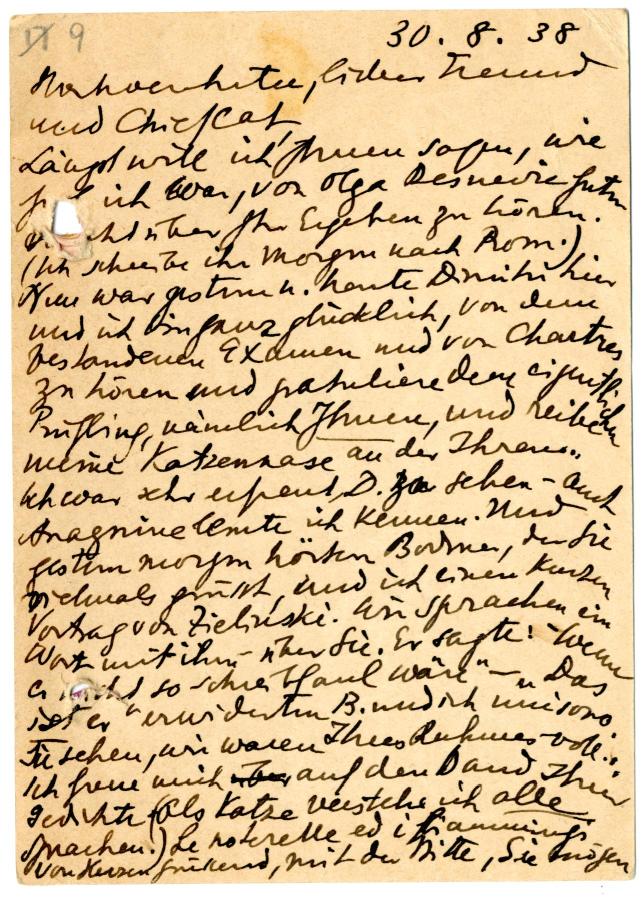 IX 9
30. 8. 38
Hochverehrter, lieber Freund
und Chiefcat,
Längst will ich Ihnen sagen, wie
ich war, von Olga Resnevic guten
über Ihr Ergehen zu hören.
(Ich schreibe ihr morgen nach Rom.)
Nun war gestern u. heute Dimitri hier
und ich bin ganz glücklich, von dem
bestandenen Examen und von Chartres
zu hören und gratuliere dem eigentlichen
Prüfling, nämlich Ihnen, und reibe
meine Katzennase an der Ihren..
Ich war sehr erfreut, D. zu sehen – auch
Anagnine lernte ich kennen. Und
gestern morgen hörten Bodmer, der Sie
vielmals grüsst, und ich einen kurzen
Vortrag von Zieliński. Wir sprachen ein
Wort mit ihm – über Sie. Er sagte: "Wenn
er nicht so schreibfaul wäre" – "Das
ist er" erwiderten B. und ich unisono
Sie sehen, wir waren Ihres Ruhmes voll..
Ich freue mich auf den Band Ihrer
Gedichte (Als Katze verstehe ich alle
Sprachen.) Le notarelle ed i
von Herzen grüssend, mit der Bitte, Sie mögen